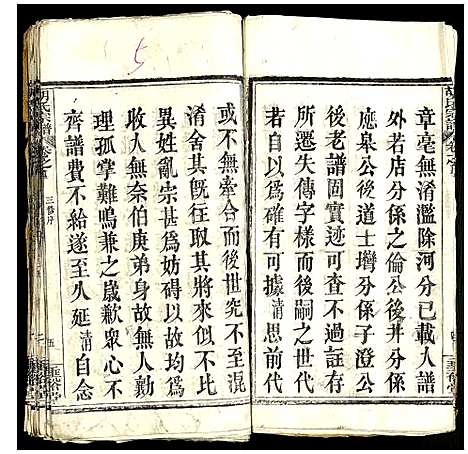 章毫無淆濫除河分已載入譜
外若店分係之倫公後井公分係
應皋公後道士塆分係子澄公
後老譜固實迹可查不過註存
所遷失傳字樣而後嗣之世代
自以爲確有可據清思前代
或不無牽合而後世究不至混
淆舍其既往取其將來似不比
異姓亂宗甚爲妨碍以故均爲
收入無奈伯庚弟身故無人勷
理孤掌難鳴兼之歲歉衆心不
齊譜費不給遂至久延清自念
胡氏宗譜
卷之首
三修序
五
5